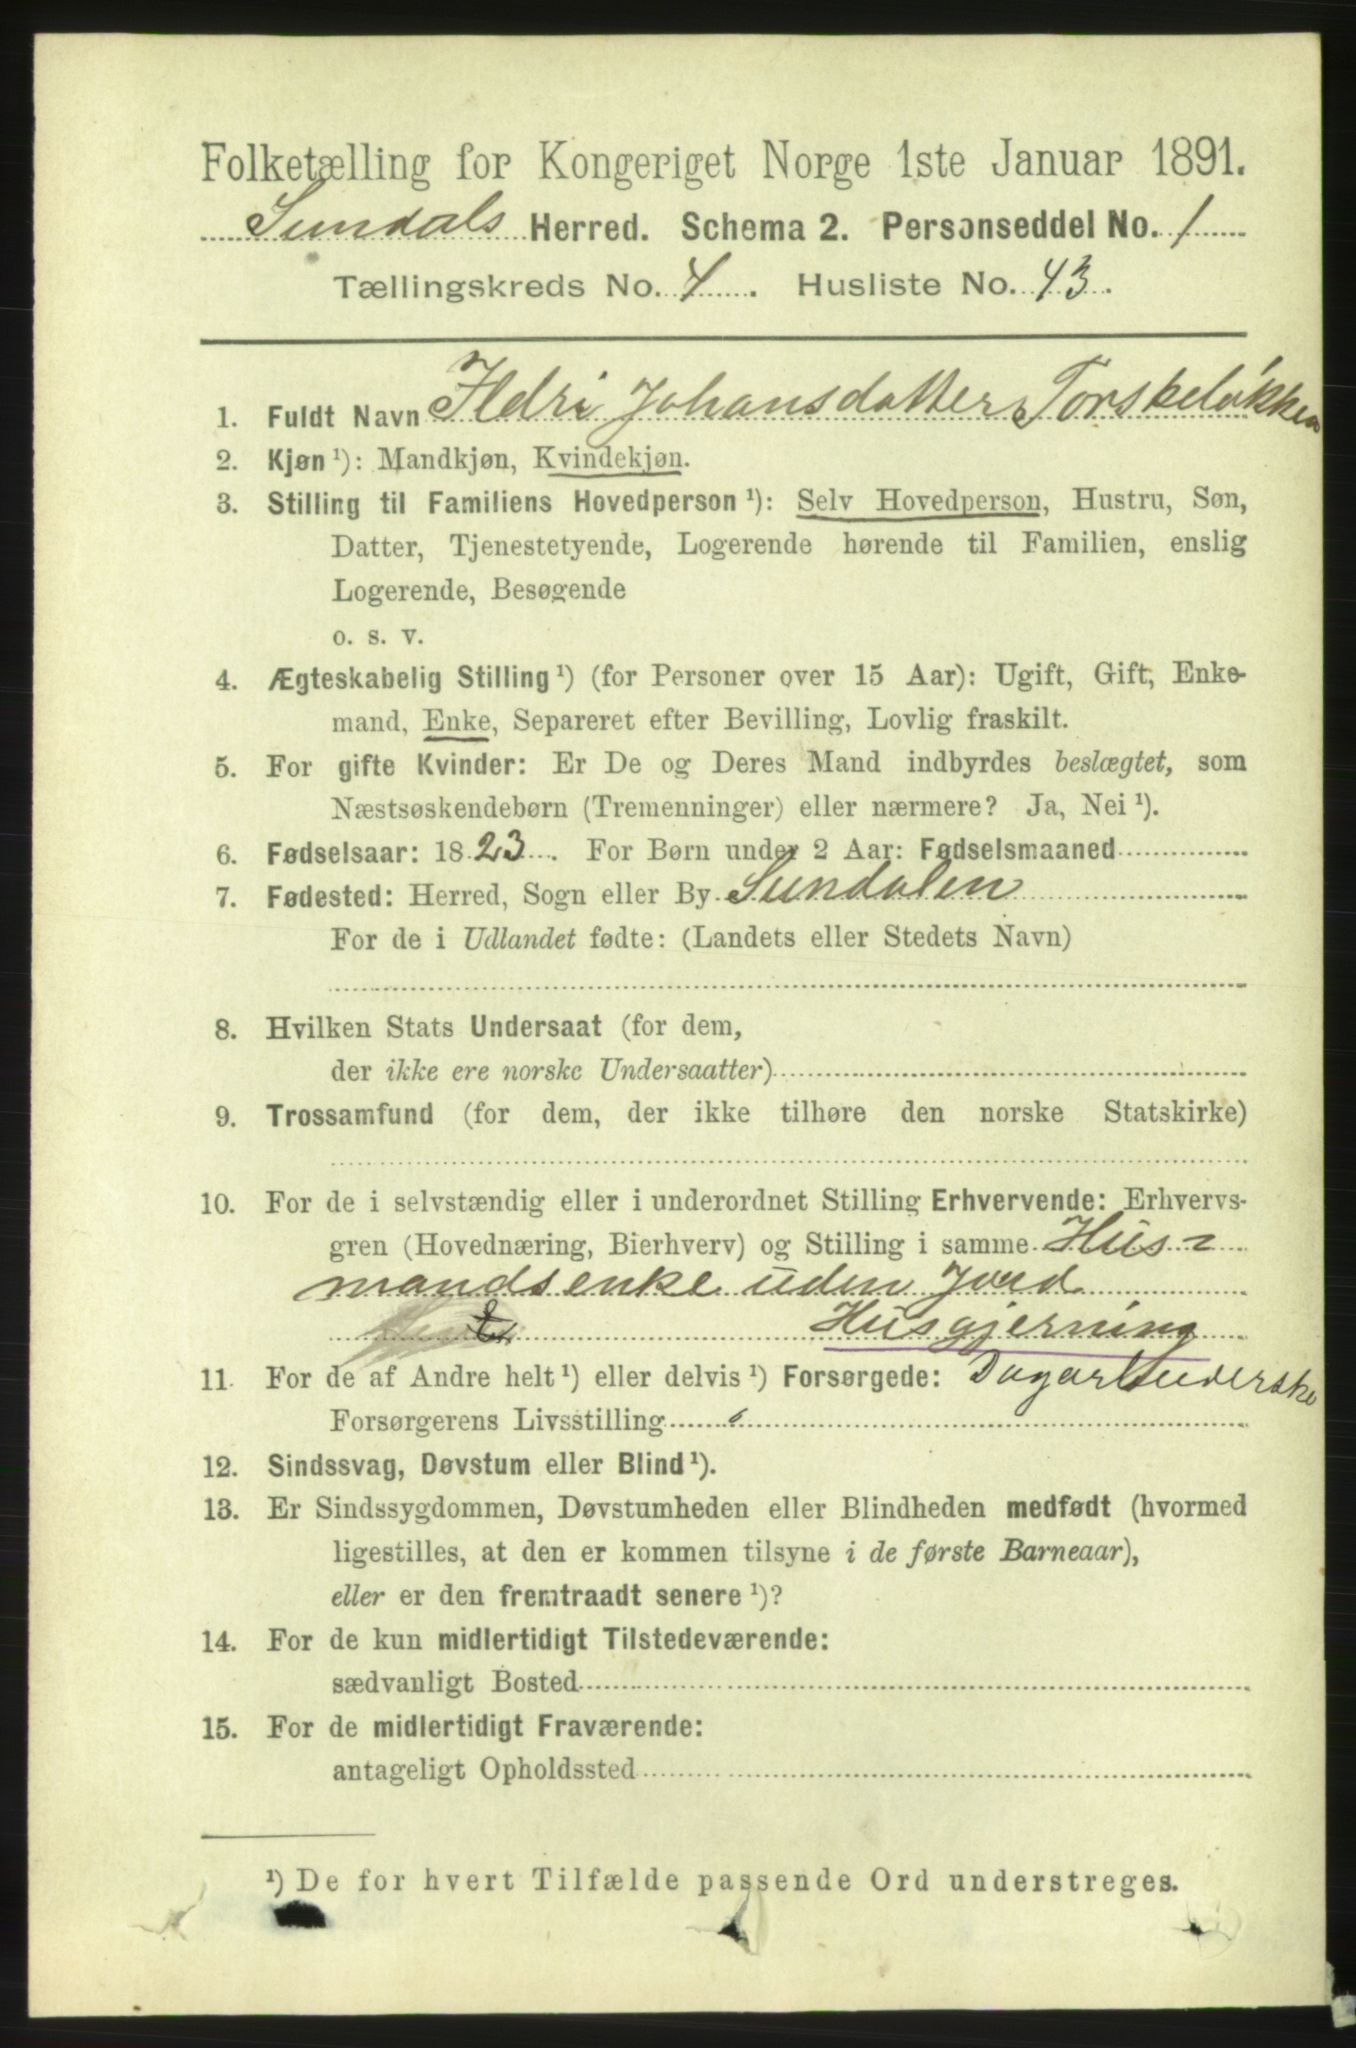 Folketælling for Kongeriget Norge 1ste Januar 1891.
Sundals Herred. Schema 2. Personseddel No. 1
Tællingskreds No. 4. Husliste No. 43.
1. Fuldt Navn Ildri Johansdatter Torskeløkken
2. Kjøn ¹): Mandkjøn, Kvindekjøn.
3. Stilling til Familiens Hovedperson ¹): Selv Hovedperson, Hustru, Søn,
Datter, Tjenestetyende, Logerende hørende til Familien, enslig
Logerende, Besøgende
o. s. v.
4. Ægteskabelig Stilling ¹) (for Personer over 15 Aar): Ugift, Gift, Enke-
mand, Enke, Separeret efter Bevilling, Lovlig fraskilt.
5. For gifte Kvinder: Er De og Deres Mand indbyrdes beslægtet, som
Næstsøskendebørn (Tremenninger) eller nærmere? Ja, Nei ¹).
6. Fødselsaar: 1823. For Børn under 2 Aar: Fødselsmaaned
7. Fødested: Herred, Sogn eller By Sundalen
For de i Udlandet fødte: (Landets eller Stedets Navn)
8. Hvilken Stats Undersaat (for dem,
der ikke ere norske Undersaatter)
9. Trossamfund (for dem, der ikke tilhøre den norske Statskirke)
10. For de i selvstændig eller i underordnet Stilling Erhvervende: Erhvervs-
gren (Hovednæring, Bierhverv) og Stilling i samme Hus-
mandsenke uden Jord
Husgjerning
11. For de af Andre helt ¹) eller delvis ¹) Forsørgede:
Forsørgerens Livsstilling
12. Sindssvag, Døvstum eller Blind ¹).
13. Er Sindssygdommen, Døvstumheden eller Blindheden medfødt (hvormed
ligestilles, at den er kommen tilsyne i de første Barneaar),
eller er den fremtraadt senere ¹)?
14. For de kun midlertidigt Tilstedeværende:
sædvanligt Bosted
15. For de midlertidigt Fraværende:
antageligt Opholdssted
¹) De for hvert Tilfælde passende Ord understreges.